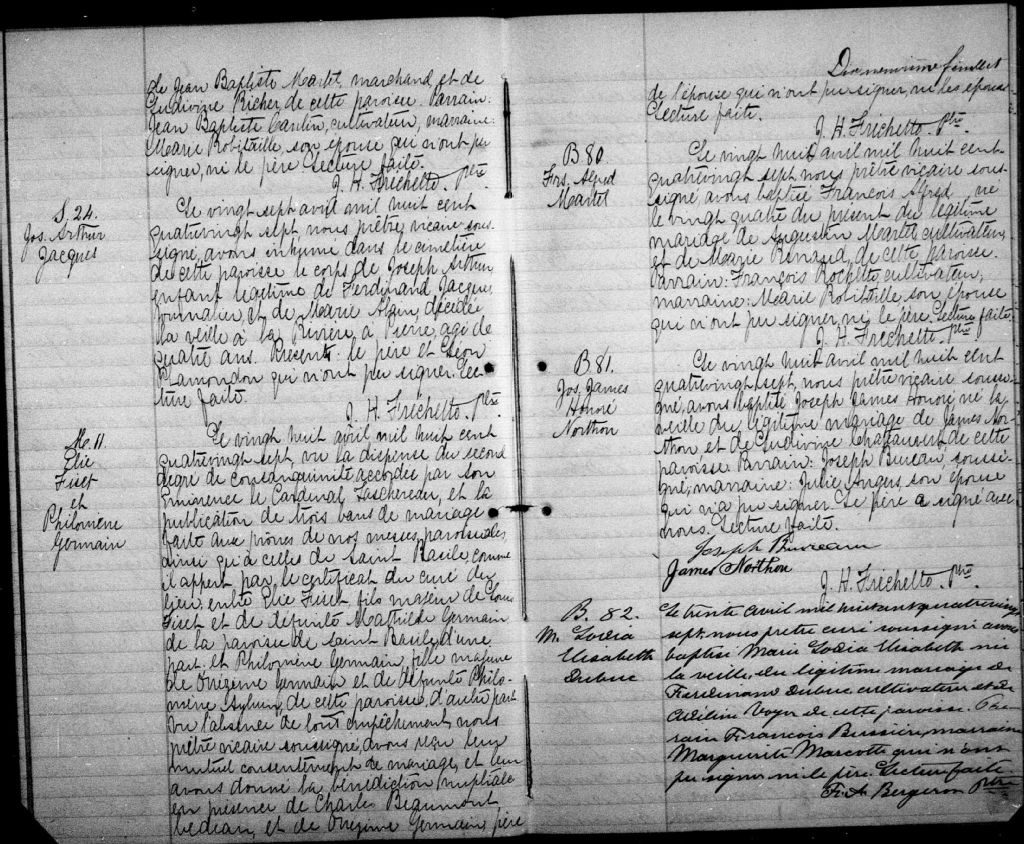 de Jean Baptiste Martel, marchand, et de
Ludivine Richer de cette paroisse. Parrain:
Jean Baptiste Cantin, cultivateur, marraine:
Marie Robitaille, son épouse qui n'ont pu
signer, ni le père Lecture faite.
J. H. Fréchette. Ptre.
S. 24.
Jos. Arthur
Jacques
Le vingt sept avril mil huit cent
quatrevingt sept nous prêtre, vicaire sous-
signé, avons inhumé dans le cimetière
de cette paroisse le corps de Joseph Arthur
enfant légitime de Ferdinand Jacques
journalier & de Marie Alain, décédé
la veille à la Rivière à Pierre, agé de
quatre ans. Présents: le père et Léon
Plamondon qui n'ont pu signer. Lec-
ture faite.
J. H. Fréchette. Ptre.
M. 11.
Elie
Fiset
et
Philomène
Germain
Le vingt huit avril mil huit cent
quatrevingt sept, vu la dispense du second
degré de consanguinité accordée par son
Eminence le Cardinal Taschereau, et la
publication de trois bans de mariage
faite aux prônes de nos messes paroissiales
ainsi qu'à celles de Saint Basile, comme
il appert par le certificat du curé du
lieu, entre Elie Fiset, fils majeur de Louis
Fiset et de défunte Mathilde Germain
de la paroisse de Saint Basile, d'une
part, et Philomène Germain, fille majeure
de Onézime Germain et de défunte Philo-
mène de cette paroisse, d'autre part
Vu l'absence de tout empêchement, nous
prêtre vicaire soussigné, avons reçu leur
mutuel consentement de mariage, et leur
avons donné la bénédiction nuptiale
en présence de Charles Beaumont,
bedeau, et de Onézime Germain, père
Dix neuvième feuillet
de l'épouse qui n'ont pu signer, ni les époux
Lecture faite.
J. H. Fréchette. Ptre.
B. 80.
Frs. Alfred
Martel
Le vingt huit avril mil huit cent
quatrevingt sept nous prêtre vicaire sous-
signé, avons baptisé François Alfred, né
le vingt quatre du présent du légitime
mariage de Augustin Martel, cultivateur,
et de Marie Renaud, de cette paroisse.
Parrain: François Rochette, cultivateur,
marraine: Marie Robitaille, son épouse
qui n'ont pu signer, ni le père Lecture faite.
J. H. Fréchette Ptre
B. 81.
Jos. James
Honoré
Northon
Le vingt huit avril mil huit cent
quatrevingt sept, nous prêtre vicaire soussi-
gné, avons baptisé Joseph James Honoré né la
veille du légitime mariage de James Nor-
thon et de Ludivine de cette
paroisse Parrain: Joseph Bureau, soussi-
gné, marraine: Julie Angers, son épouse
qui n'a pu signer. Le père a signé avec
nous. Lecture faite.
Joseph Bureau
James Northon
J. H. Fréchette. Ptre.
B. 82.
M. Lodia
Elisabeth
Dubuc
Le trente Avril mil huit cent quatrevingt
sept, nous pretre curé soussigné avons
baptisé Marie Lodia Elisabeth née
la veille, du légitime mariage de
Ferdinand Dubuc cultivateur et de
Adéline Voyer de cette paroisse. Par-
rain Francois Bussière, marraine
Marguerite Marcotte qui n'ont
pu signer ni le père. Lecture faite
F. A. Bergeron Ptre